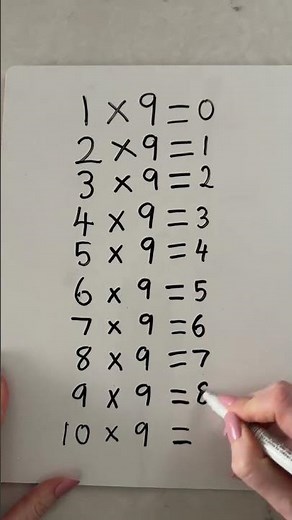 1 × 9 = 0
2 × 9 = 1
3 × 9 = 2
4 × 9 = 3
5 × 9 = 4
6 × 9 = 5
7 × 9 = 6
8 × 9 = 7
9 × 9 = 8
10 × 9 =